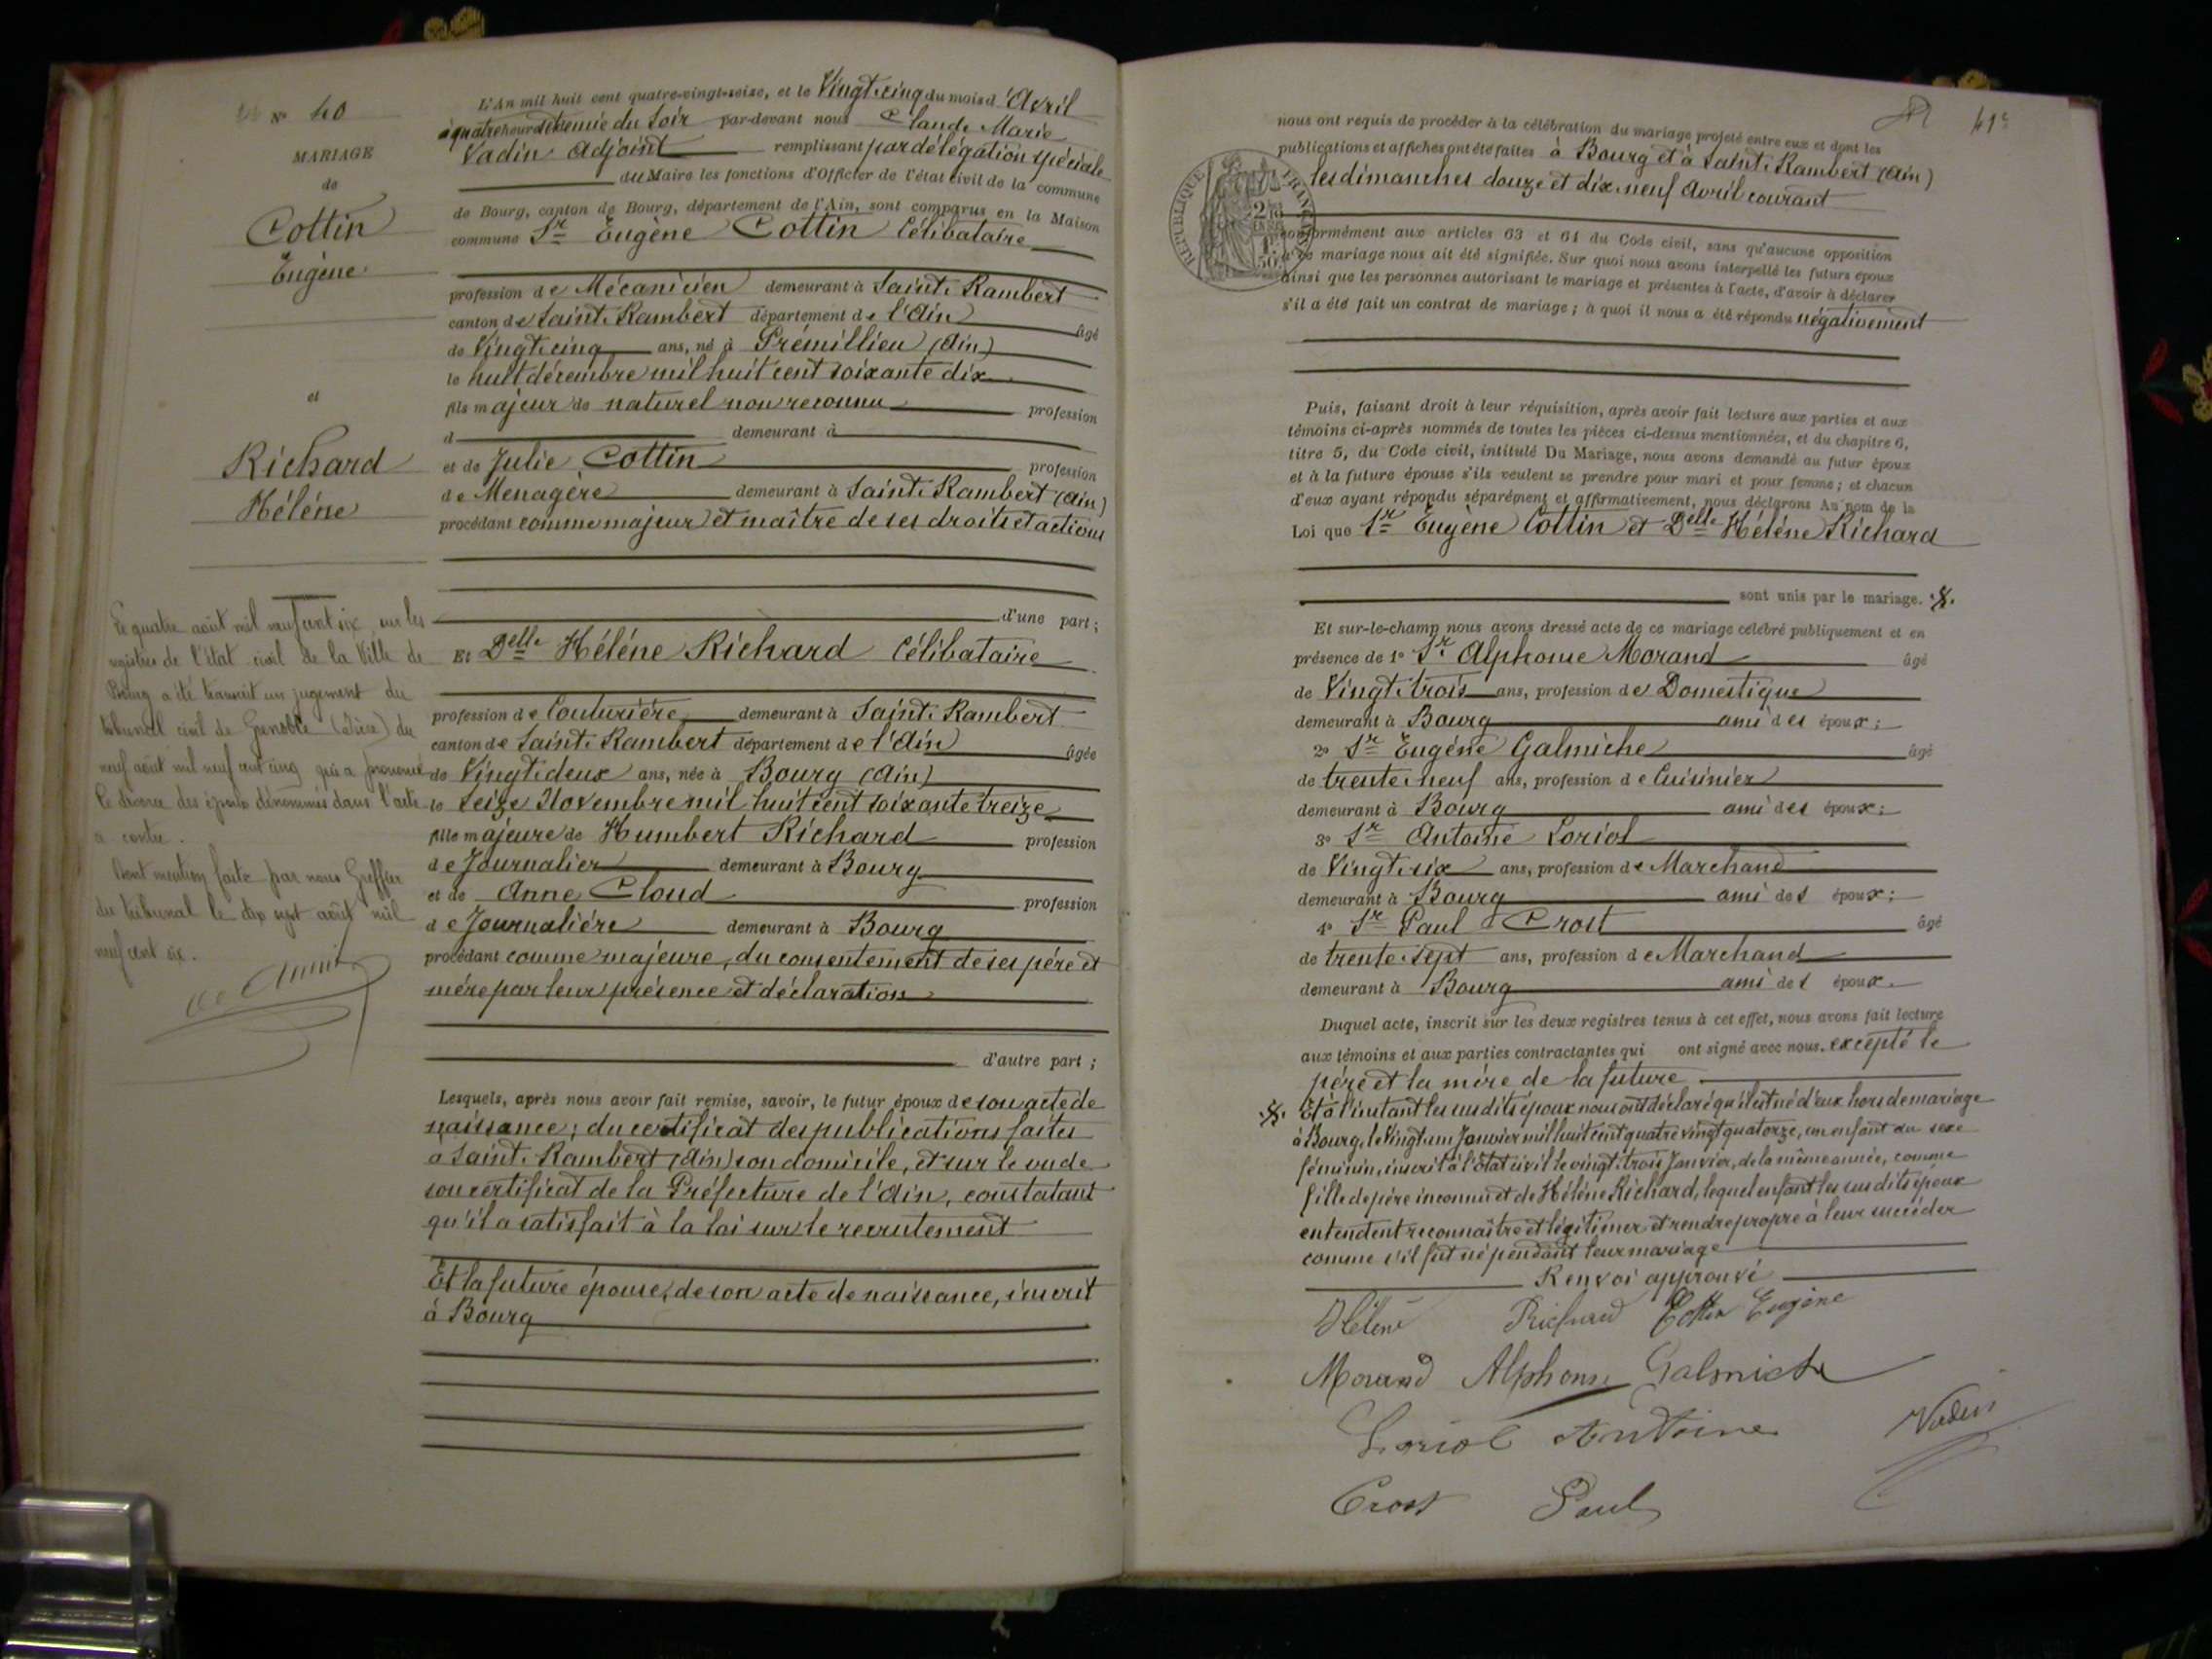 N° 40
MARIAGE
de
Cottin
Eugène
et
Richard
Hélène
Le quatre août mil neuf cent six, sur les
registres de l'état civil de la Ville de
Bourg a été transcrit un jugement du
tribunal civil de Grenoble (Isère) du
neuf août mil neuf cent cinq qui a prononcé
le divorce des époux dénommés dans l'acte
ci contre.
Dont mention faite par nous Greffier
du tribunal le dix sept août mil
neuf cent six.
L'An mil huit cent quatre-vingt-seize, et le Vingt-cinq du mois d'Avril
à quatre heures et demie du soir par-devant nous Claude Marie
Vadin Adjoint remplissant par délégation spéciale
du Maire les fonctions d'Officier de l'état civil de la commune
de Bourg, canton de Bourg, département de l'Ain, sont comparus en la Maison
commune Sr Eugène Cottin Célibataire
profession de Mécanicien demeurant à Saint-Rambert
canton de Saint-Rambert département de l'Ain âgé
de Vingt-cinq ans, né à Prémillieu (Ain)
le huit décembre mil huit cent soixante dix
fils majeur de naturel non reconnu profession
d demeurant à
et de Julie Cottin profession
de Menagère demeurant à Saint-Rambert (Ain)
procédant comme majeur et maître de ses droits et actions
d'une part;
Et Delle Hélène Richard Célibataire
profession de Couturière demeurant à Saint-Rambert
canton de Saint-Rambert département de l'Ain âgée
de Vingt-deux ans, née à Bourg (Ain)
le seize Novembre mil huit cent soixante treize
fille majeure de Humbert Richard profession
de Journalier demeurant à Bourg
et de Anne Cloud profession
de Journalière demeurant à Bourg
procédant comme majeure, du consentement de ses père et
mère par leur présence et déclaration
d'autre part;
Lesquels, après nous avoir fait remise, savoir, le futur époux de son acte de
naissance; du certificat des publications faites
a Saint-Rambert (Ain) son domicile, et sur le vu de
son certificat de la Préfecture de l'Ain, constatant
qu'il a satisfait à la loi sur le recrutement
Et la future épouse, de son acte de naissance, inscrit
à Bourg
41e
nous ont requis de procéder à la célébration du mariage projeté entre eux et dont les
publications et affiches ont été faites à Bourg et à Saint-Rambert (Ain)
les dimanches douze et dix-neuf Avril courant
RÉPUBLIQUE FRANÇAISE
conformément aux articles 63 et 64 du Code civil, sans qu'aucune opposition
à ce mariage nous ait été signifiée. Sur quoi nous avons interpellé les futurs époux
ainsi que les personnes autorisant le mariage et présentes à l'acte, d'avoir à déclarer
s'il a été fait un contrat de mariage; à quoi il nous a été répondu négativement
Puis, faisant droit à leur réquisition, après avoir fait lecture aux parties et aux
témoins ci-après nommés de toutes les pièces ci-dessus mentionnées, et du chapitre 6,
titre 5, du Code civil, intitulé Du Mariage, nous avons demandé au futur époux
et à la future épouse s'ils veulent se prendre pour mari et pour femme; et chacun
d'eux ayant répondu séparément et affirmativement, nous déclarons Au nom de la
Loi que Sr Eugène Cottin et Delle Hélène Richard
sont unis par le mariage.
Et sur-le-champ nous avons dressé acte de ce mariage célébré publiquement et en
présence de 1° Sr Alphonse Morand âgé
de Vingt-trois ans, profession de Domestique
demeurant à Bourg ami des époux;
2° Sr Eugène Galmiche âgé
de trente-neuf ans, profession de Cuisinier
demeurant à Bourg ami des époux;
3° Sr Antoine Loriol
de Vingt-six ans, profession de Marchand
demeurant à Bourg ami des époux;
4° Sr Paul Crost âgé
de trente-sept ans, profession de Marchand
demeurant à Bourg ami des époux.
Duquel acte, inscrit sur les deux registres tenus à cet effet, nous avons fait lecture
aux témoins et aux parties contractantes qui ont signé avec nous. excepté le
père et la mère de la future
Et à l'instant les susdits époux nous ont déclaré qu'il est né d'eux hors de mariage
à Bourg, le Vingt-un Janvier mil huit cent quatre vingt quatorze, un enfant du sexe
féminin, inscrit à l'état civil le vingt-trois Janvier, de la même année, comme
fille de père inconnu et de Hélène Richard, lequel enfant les susdits époux
entendent reconnaître et légitimer et rendre propre à leur succéder
comme s'il fut né pendant leur mariage
Renvoi approuvé
Hélène Richard Cottin Eugène
Morand Alphonse Galmiche
Loriol Antoine Vadin
Crost Paul